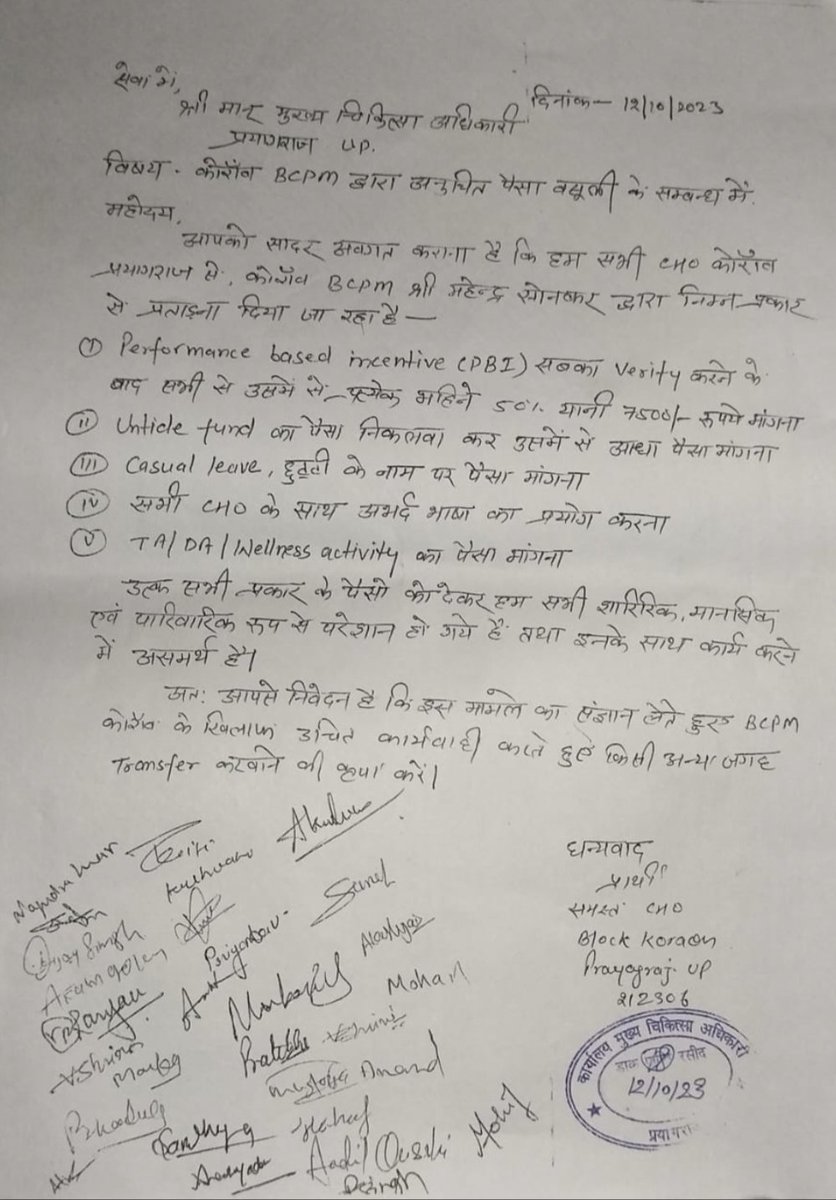 सेवा में,
दिनांक- 12/10/2023
श्री मान् मुख्य चिकित्सा अधिकारी
प्रयागराज UP.
विषय - कोराँव BCPM द्वारा अनुचित पैसा वसूली के सम्बन्ध में.
महोदय,
आपको सादर अवगत कराना है कि हम सभी CHO कोराँव
प्रयागराज से, कोराँव BCPM श्री महेन्द्र सोनकर द्वारा निम्न प्रकार
से प्रताड़ना दिया जा रहा है —
(I) Performance based incentive (PBI) सबका verify करने के
बाद सभी से उसमें से प्रत्येक महिने 50% यानी 7500/- रूपये मांगना
(II) Untide fund का पैसा निकलवा कर उसमें से आधा पैसा मांगना
(III) Casual leave, छुट्टी के नाम पर पैसा मांगना
(IV) सभी CHO के साथ अभर्द भाषा का प्रयोग करना
(V) TA/DA/Wellness activity का पैसा मांगना
उक्त सभी प्रकार के पैसो को देकर हम सभी शारिरिक, मानसिक
एवं पारिवारिक रूप से परेशान हो गये हैं तथा इनके साथ कार्य करने
में असमर्थ है।
अतः आपसे निवेदन है कि इस मामले का संज्ञान लेते हुए BCPM
कोराँव के खिलाफ उचित कार्यवाही करते हुए किसी अन्य जगह
Transfer करवाने की कृपा करें।
धन्यवाद
प्रार्थी
समस्त CHO
Block Koraon
Prayagraj UP
212306
Priyanka
Mohan
Anand
Sandhya
Mohit
कार्यालय मुख्य चिकित्सा अधिकारी
डाक प्राप्ति रसीद
12/10/23
प्रयागरा